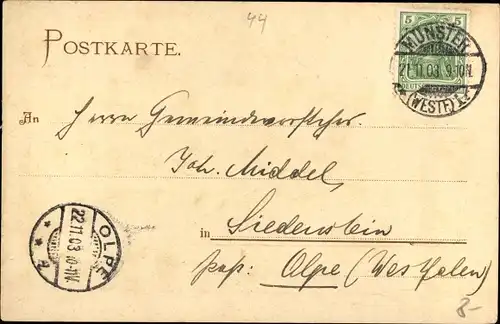 44
POSTKARTE.
5 5
MÜNSTER
21.11.03. 9-10N.
(WESTF) 1
An Herrn Gemeindevorsteher
Joh. Middel,
in Siedenstein
Post: Olpe (Westfalen)
OLPE
22.11.03 10-11V.
8-